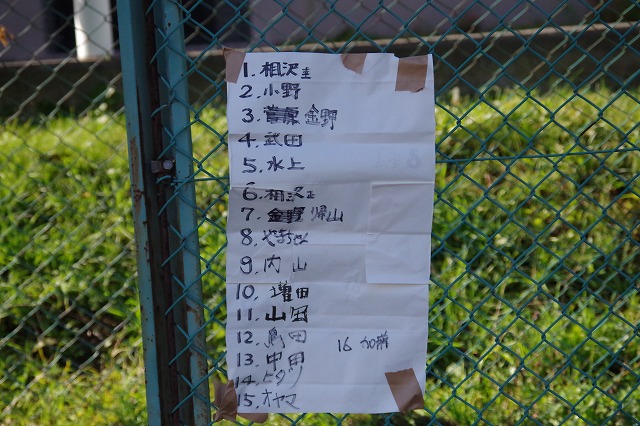 1. 相沢圭
2. 小野
3. 菅原 金野
4. 武田
5. 水上
6. 相沢正
7. 金野 帰山
8.
9. 内山
10. 増田
11. 山田
12. 島田
16 加藤
13. 中田
14. ヒタノ
15. オヤマ